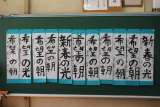 新春の光
希望の朝
希望の朝
希望の朝
希望の朝
希望の朝
新春の光
希望の朝
希望の朝